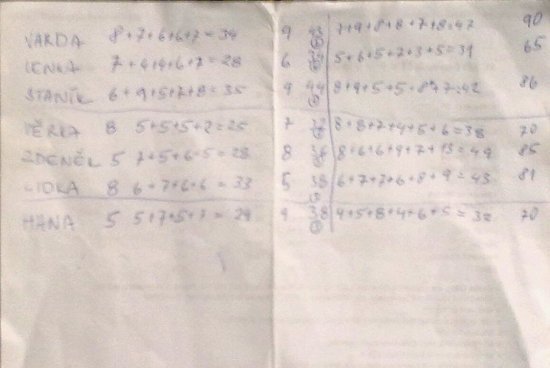 VARDA 8+7+6+6+7=34 9 43 7+9+8+8+7+8=47 90
LENKA 7+4+4+6+7=28 6 34 5+6+5+7+3+5=31 65
STANÍK 6+9+5+7+8=35 9 44 8+9+5+5+8+7=42 86
VĚRKA 8 5+5+5+2=25 7 32 8+8+7+4+5+6=38 70
ZDENĚK 5 7+5+6+5=28 8 36 8+6+6+9+7+13=49 85
LIDKA 8 6+7+6+6=33 5 38 6+7+7+6+8+9=43 81
HANA 5 5+7+5+7=29 9 38 4+5+8+4+6+5=32 70